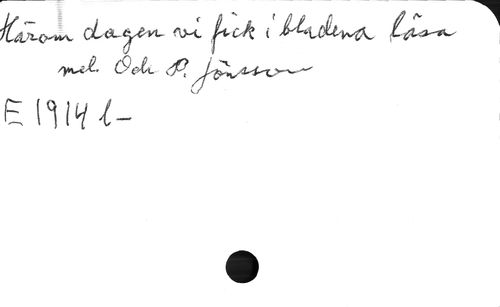 Härom dagen vi fick i bladena läsa
mel. Och P. Jönsson
E 1914 l-